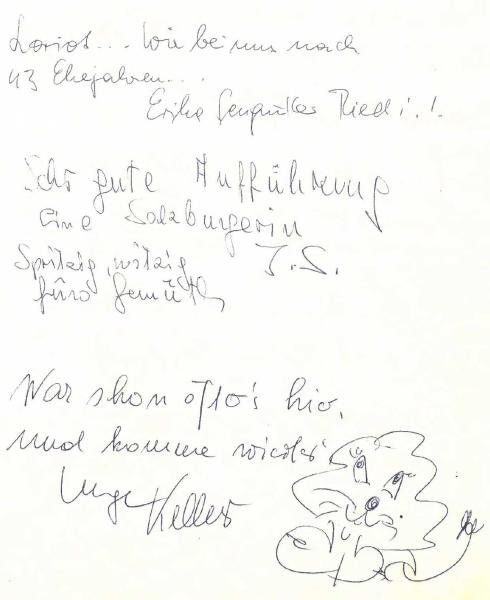 Loriot... Wie bei uns nach
43 Ehejahren...
Erika Ried i. I.
Sehr gute Aufführung
eine Salzburgerin
J.S.
Spritzig, witzig
fürs Gemüth
War schon öfters hier,
und komme wieder
Keller